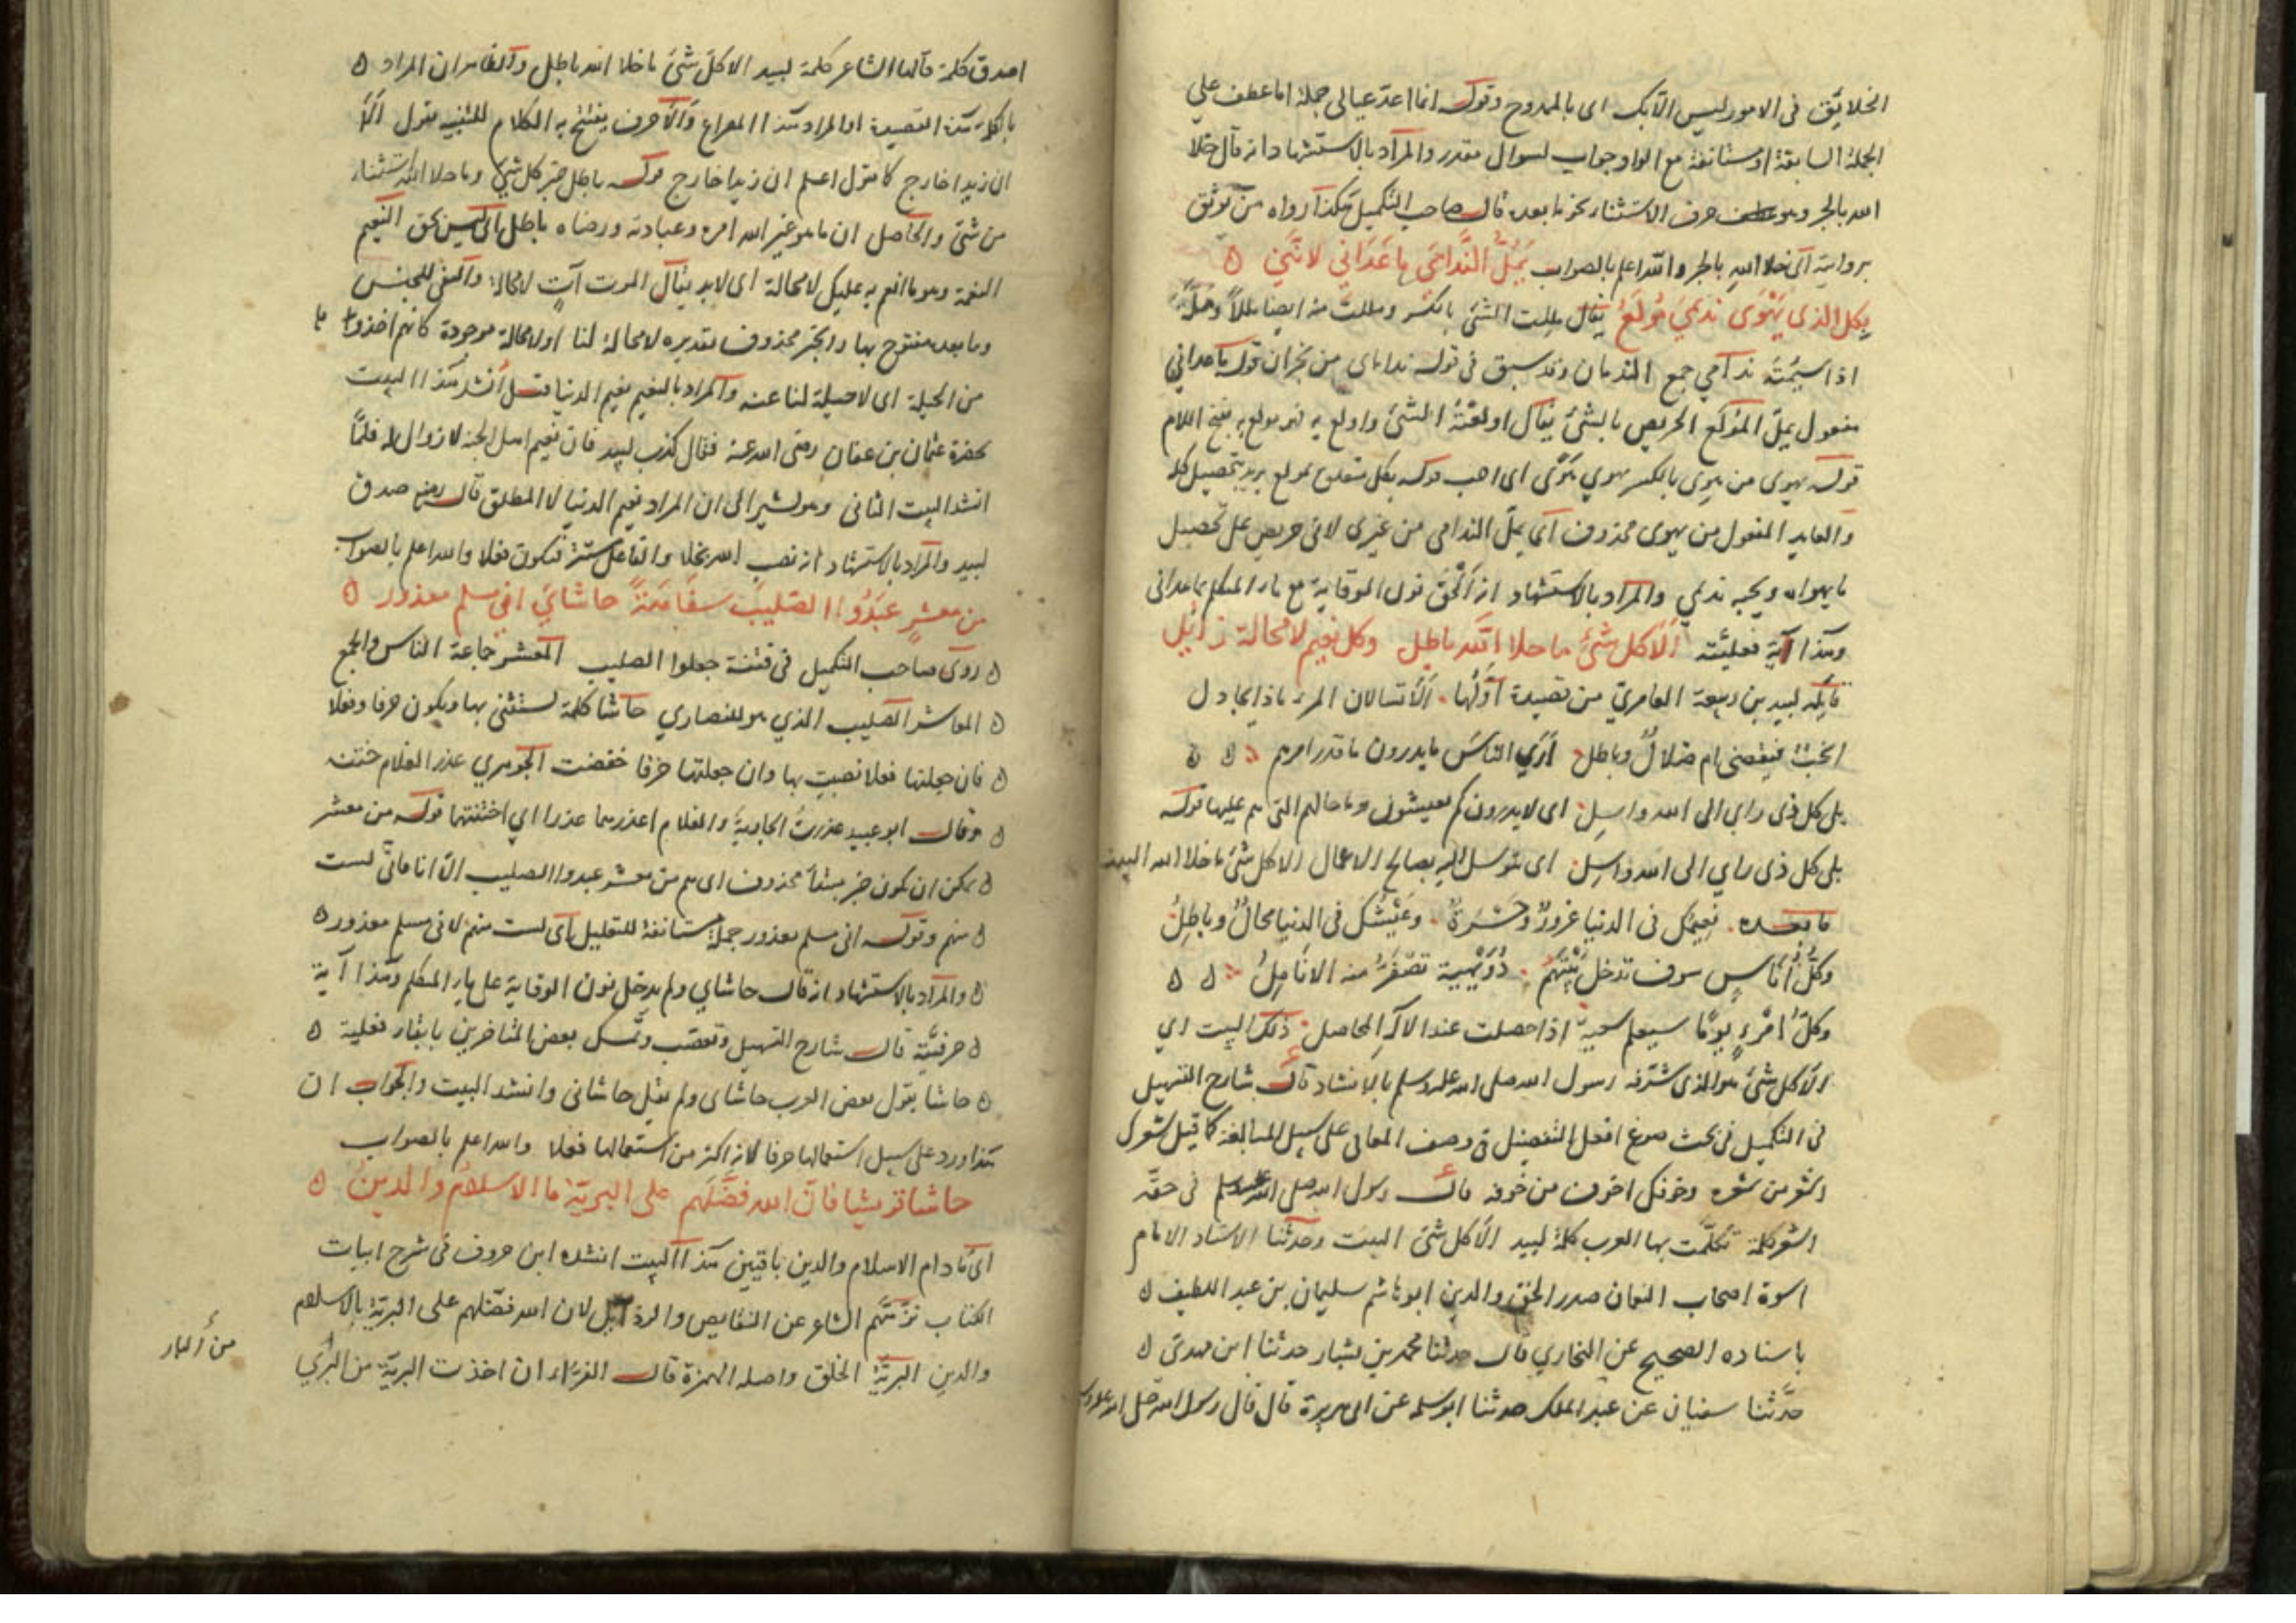 الخلايق فى الامور ليس الا بك اى بالممدوح وقوله انما اعدّ عيالى جملة اما عطف على
الجملة السابقة او مستانفة مع الواو جواب لسوال مقدر والمراد بالاستشهاد انه قال خلا
الله بالجر وهو حرف الاستثنا، نجز ما بعده قال صاحب التكميل هكذا رواه من توثق
بروايته اى خلا اللهِ بالجر والله اعلم بالصواب يُمَلُّ النَّدَامَى ما عَدَانِي لانَّنِي ٥
بِكل الذى يَهْوَى نديمىَ مُولَعُ يقال مللت الشئ بالكسر ومللت منه ايضا مللاً
اذا سئمته ندامى جمع الندمان وقد سبق فى قوله نداماى من نجران قوله ما عدانى
مفعول يملّ المُولَع الحريص بالشئ يقال اولعته الشئ واولع به فهو مولع به بفتح اللام
قوله يهوى من هوِى بالكسر يهوى هَوًى اى احب قوله بكل متعلق بمولع يريد بتحصيل كل
والعايد المفعول من يهوى محذوف اى يملّ الندامى من غيرى لانى حريص على تحصيل
ما يهواه ويحبه نديمى والمراد بالاستشهاد انه الحق نون الوقاية مع ياء المتكلم بما عدانى
وهذا آية فعليته الا كل شئ ما خلا الله باطل وكل نعيم لا محالة زائل
قايله لبيد بن ربيعة العامرى من قصيدة اوّلُها، اَلَا تسالان المرء ماذا يحاول
انحبٌ فيقضى ام ضلالٌ وباطل اَرَى الناسَ ما يدرون ما قدر امرهم ٥ ٥
بلى كل ذى راى الى الله واسِل، اى لا يدرون كم يعيشون وما حالهم التى هم عليها قوله
بلى كل ذى راي الى الله واسِل، اى متوسل اليه بصالح الاعمال الا كل شئ ما خلا الله البيت
ما بعده، نعيمك فى الدنيا غرورٌ وحَسْرَةٌ، وعَيْشُكَ فى الدنيا محالٌ وباطِلُ
وكلُّ أناسٍ سوف تدخل بَيْنَهُمْ، دُوَيْهِيةٌ تصفَرُّ منه الانامِلُ ٥ ٥
وكلّ امْرِءٍ يومًا سيعلم سعيه اذا حصلت عند الاله المحاصل، ذلك البيت اى
الا كل شئ هو الذى شرّفه رسول الله صلى الله عليه وسلم بالانشاد قال شارح التسهيل
فى التكميل فى بحث صوغ افعل التفضيل فى وصف المعانى على سبيل المبالغة كما قيل شعرك
اشعر من شعره وخوفك اخوف من خوفه قال رسول الله صلى الله عليه وسلم فى حقّه
اشعر كلمة تكلّمت بها العرب كلمة لبيد الا كل شئ البيت وحدثنا الاستاد الامام
اسوة اصحاب النعمان صدر الحق والدين ابو هاشم سليمان بن عبد اللطيف ٥
باسناده الصحيح عن البخاري قال حدثنا محمد بن بشار حدثنا ابن مهدى ٥
حدّثنا سفيان عن عبد الملك حدثنا ابو سلمة عن ابى هريرة قال قال رسول الله صلى الله عليه وسلم
اصدق كلمة قالها الشاعر كلمة لبيد الا كل شئ ما خلا الله باطل والظاهر ان المراد ٥
بالكلمة هذه القصيدة او المراد هذا المصراع والا حرف يفتتح به الكلام للتنبيه تقول اَلَا
ان زيدا خارج كما تقول اعلم ان زيدا خارج قوله باطل خبر كل شئ وما خلا الله استثناء
من شئ والحاصل ان ما هو غير الله امره وعبادته ورضاه باطل اى ليس بحق النعيم
النعمة وهو ما انعم به عليك لا محالة اى لا بد يقال الموت آتٍ لا محالة والنفى للجنس
وما بعده مفتوح بها والخبر محذوف تقديره لا محالة لنا او لا محالة موجودة كانهم اخذوا
من الحيلة اى لا حيلة لنا عنه والمراد بالنعيم نعيم الدنيا قيل أنشد هذا البيت
بحضرة عثمان بن عفان رضى الله عنه فقال كذب لبيد فان نعيم اهل الجنة لا زوال له فلمّا
انشد البيت الثانى وهو يشير الى ان المراد نعيم الدنيا لا المطلق قال رضه صدق
لبيد والمراد بالاستشهاد انه نصب الله بخلا والفاعل مستتر فيكون فعلا والله اعلم بالصواب
من معشرٍ عَبَدُوا الصليبَ سفاهَةً حاشايَ انى مسلم معذور ٥
٥ روى صاحب التكميل فى فتنة جعلوا الصليب المعشر جماعة الناس والجمع
٥ المعاشر الصليب الذي هو للنصارى حاشا كلمة يستثنى بها ويكون حرفا وفعلا
٥ فان جعلتها فعلا نصبت بها وان جعلتها حرفا خفضت الجوهري عذر الغلام ختنه
٥ وقال ابو عبيد عذرتُ الجارية والغلام اعذرهما عذرا اي اختنتهما قوله من معشر
٥ يمكن ان يكون خبر مبتدأ محذوف اى هم من معشر عبدوا الصليب الا انا فانّى لست
٥ منهم وقوله انى مسلم معذور جملة مستانفة للتعليل اى لست منهم لانى مسلم معذور ٥
٥ والمراد بالاستشهاد انه قال حاشاي ولم يدخل نون الوقاية على ياء المتكلم وهذا آية
٥ حرفيّته قال شارح التسهيل وتعصّب وتمسك بعض المتاخرين بابقاء فعلية ٥
٥ حاشا بقول بعض العرب حاشاى ولم يقل حاشانى وانشد البيت والجواب ان
هذا ورد على سبيل استعمالها حرفا لانه اكثر من استعمالها فعلا والله اعلم بالصواب
حاشا قريشا فان الله فضّلهم على البريّة بالاسلام والدينِ ٥
اى ما دام الاسلام والدين باقيين هذا البيت انشده ابن خروف فى شرح ابيات
الكتاب نزّههم الشاعر عن النقايص والرذايل لان الله فضّلهم على البريّة بالاسلام
والدين البريّة الخلق واصله الهمزة قال الفرّاء ان اخذت البريّة من البَرَي